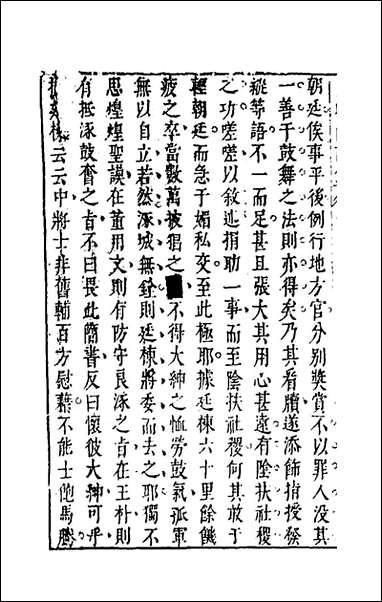 朝廷俟事平後例行地方官分别奬賞不以罪人没其
一善于鼓舞之法則亦得矣乃其看牘遂添飾指授發
縱等語不一而足甚且張大其用心甚遠有陰扶社稷
之功嗟嗟以敘述捐助一事而至陰扶社稷何其敢于
輕朝廷而急于媚私交至此極耶據廷棟六十里餘饑
疲之卒當數萬披猖之 不得大紳之恤勞鼓氣孤軍
無以自立若然涿城無銓則廷棟將委而去之耶獨不
思煌煌聖謨在董用文則有防守良涿之旨在王朴則
有抵涿鼓奮之旨不曰畏此簡書反曰懷彼大紳可乎
云云中將士非舊輔百方慰藉不能士飽馬騰